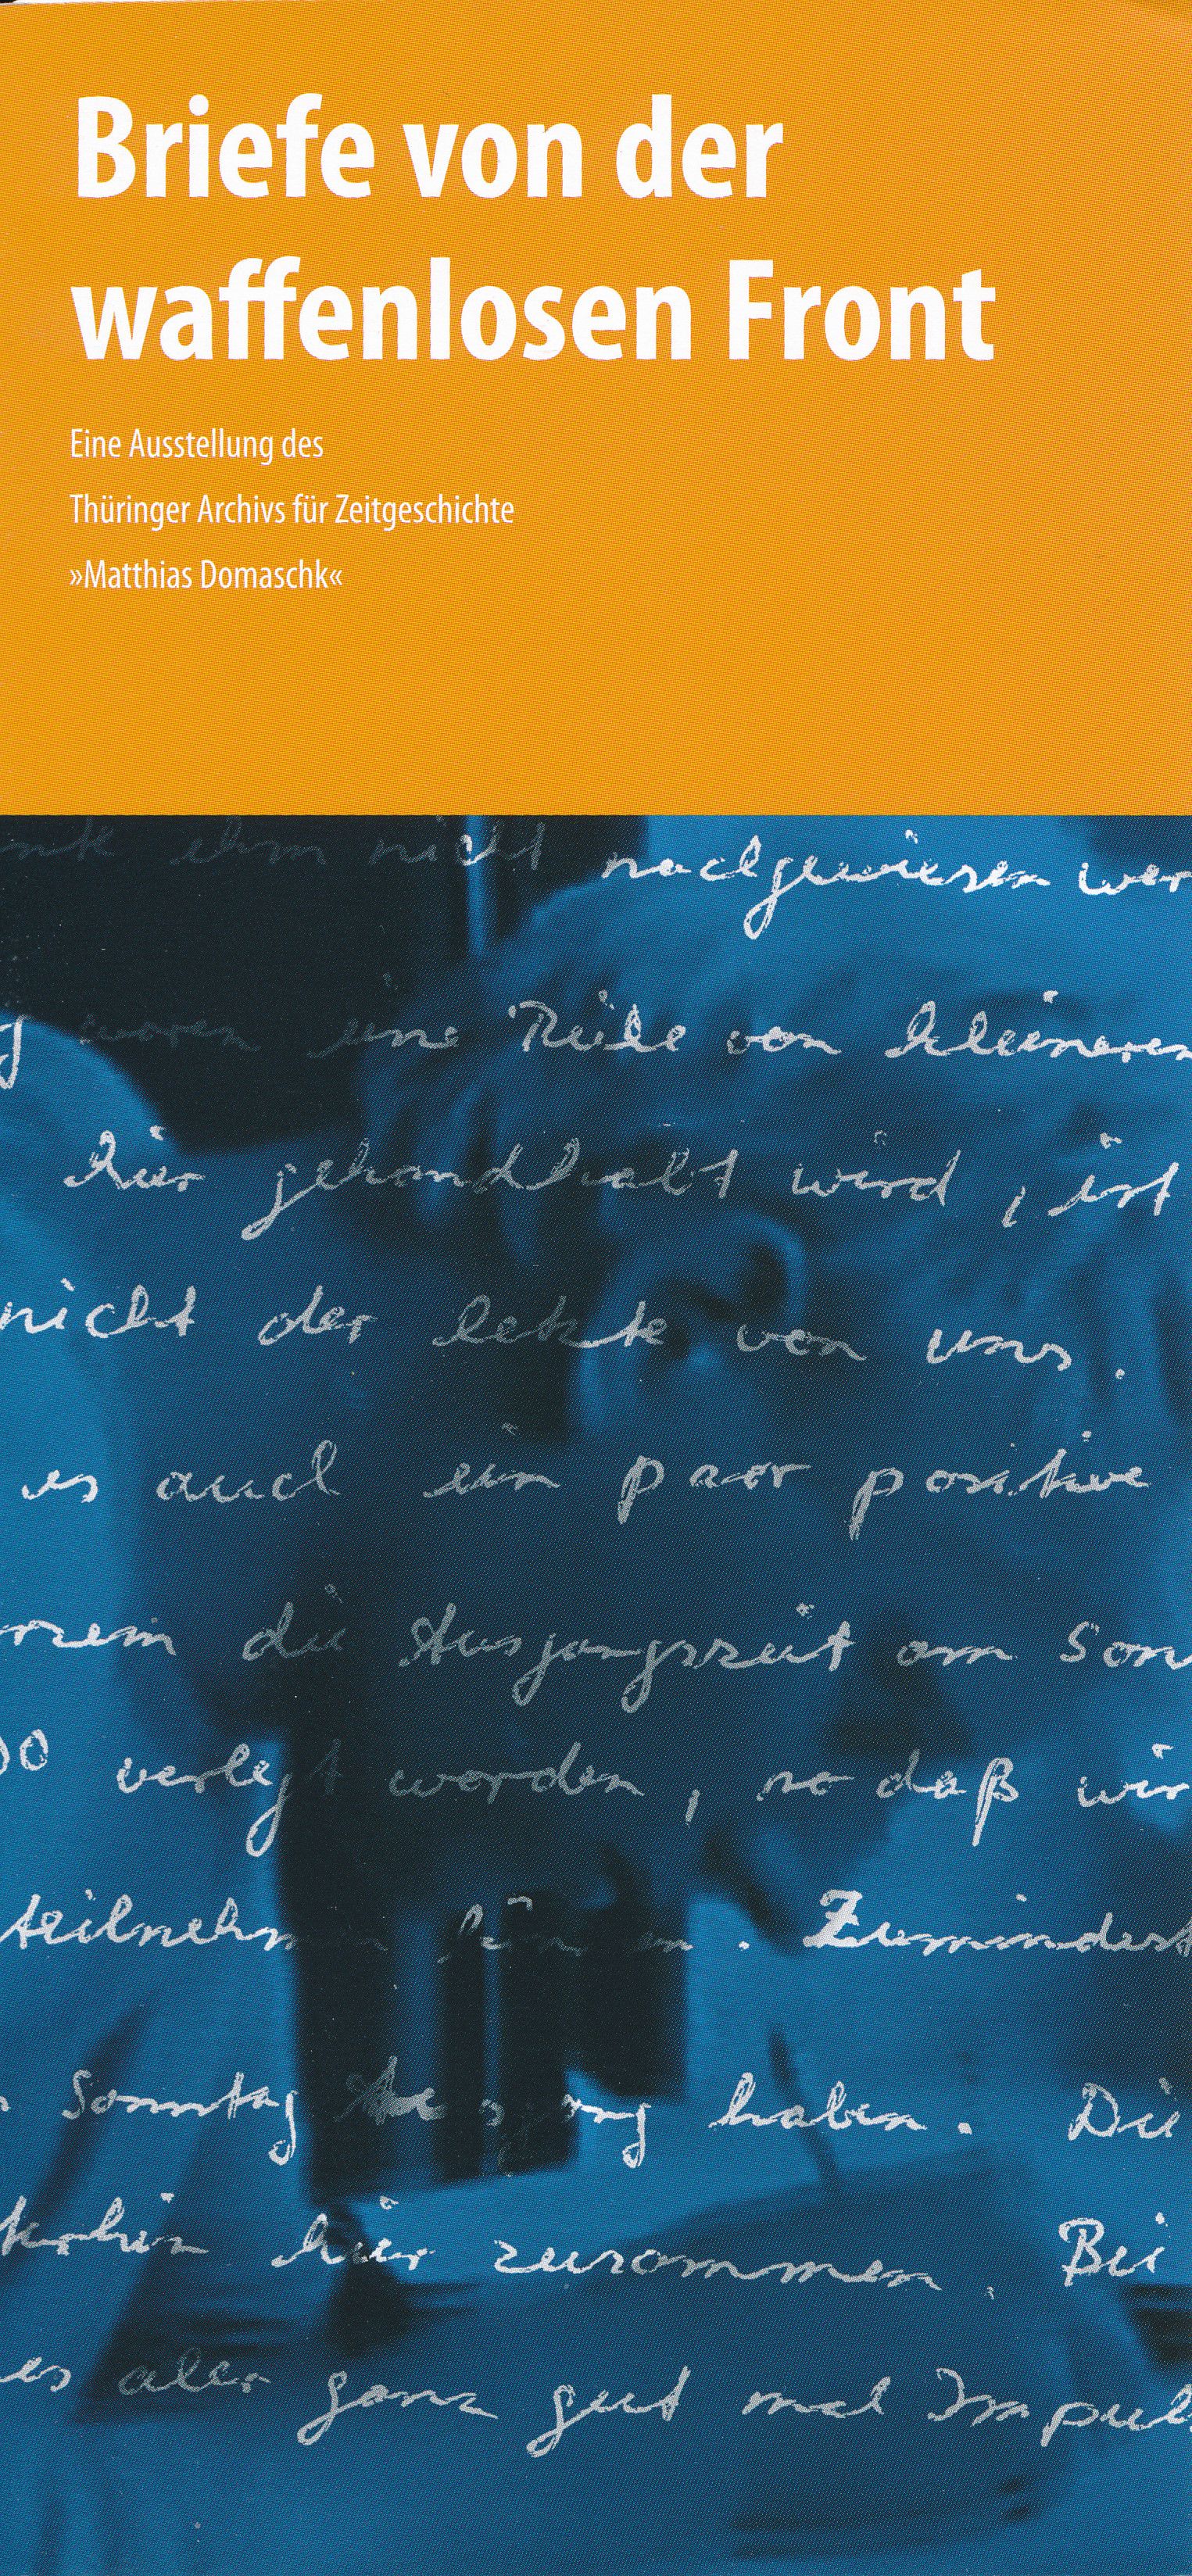 Briefe von der
waffenlosen Front
Eine Ausstellung des
Thüringer Archivs für Zeitgeschichte
»Matthias Domaschk«
ihm nicht nachgewiesen wer
waren eine Reihe von kleineren
hier gehandhabt wird, ist
nicht der letzte von uns.
es auch ein paar positive
die Ausgangszeit am Son
00 verlegt worden, so daß wir
teilnehmen können. Zumindest
Sonntag Ausgang haben. Die
hier zusammen. Bei
es aber ganz gut mal Impul